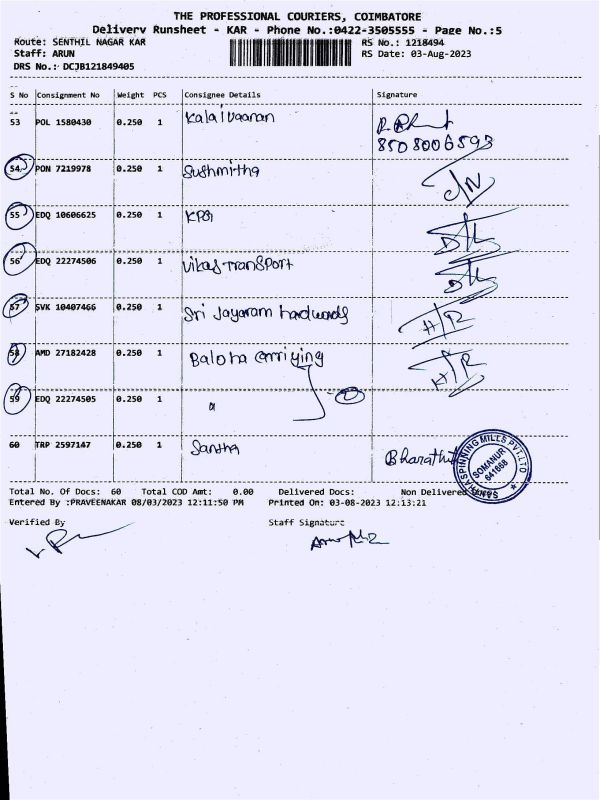 THE PROFESSIONAL COURIERS, COIMBATORE
Delivery Runsheet - KAR - Phone No.:0422-3505555 - Page No.:5
Route: SENTHIL NAGAR KAR
RS No.: 1218494
Staff: ARUN
RS Date: 03-Aug-2023
DRS No.: DCJB121849405
S No Consignment No Weight PCS Consignee Details Signature
53 POL 1580430 0.250 1 Kalaivaanan
8508006593
54 PON 7219978 0.250 1 Sushmitha
55 EDQ 10606625 0.250 1 KPG
56 EDQ 22274506 0.250 1 Vikas Transport
57 SVK 10407466 0.250 1 Sri Jayaram hardwards
58 AMD 27182428 0.250 1 Balota carriying
59 EDQ 22274505 0.250 1 "
60 TRP 2597147 0.250 1 Santha Bharathi
SPINNING MILLS PVT.LTD
SOMANUR
641668
Total No. Of Docs: 60 Total COD Amt: 0.00 Delivered Docs: Non Delivered
Entered By :PRAVEENAKAR 08/03/2023 12:11:50 PM Printed On: 03-08-2023 12:13:21
Verified By Staff Signature